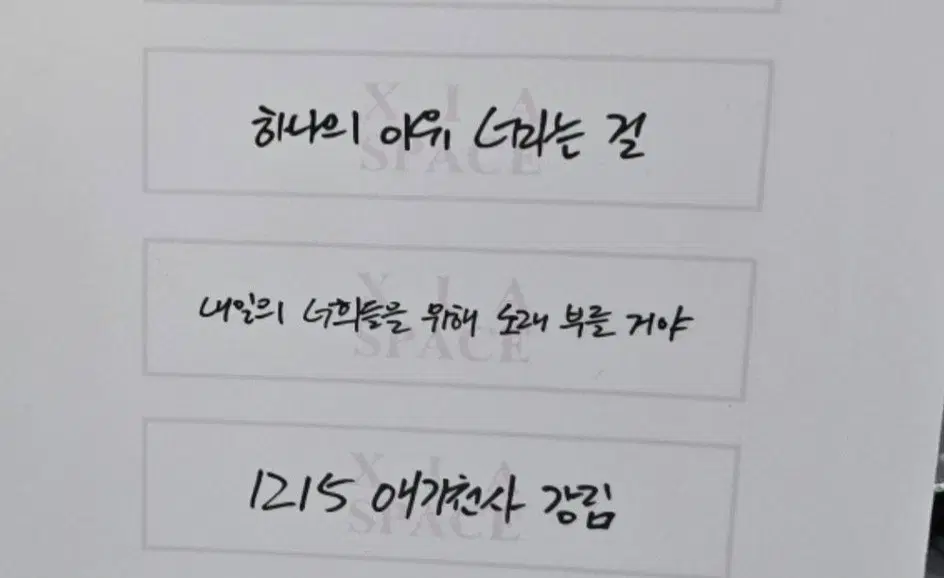 XIA
SPACE
하나의 이유 너라는 걸
XIA
SPACE
내일의 너희들을 위해 노래 부를 거야
XIA
SPACE
1215 애기천사 강림